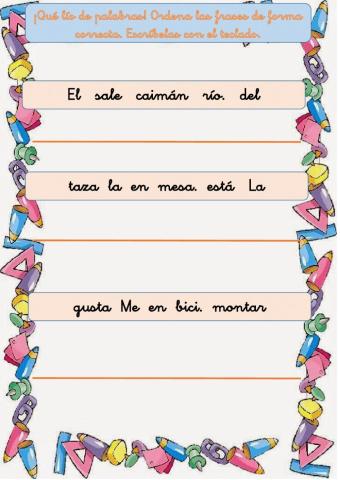 ¡Qué lío de palabras! Ordena las frases de forma
correcta. Escríbelas con el teclado.
El sale caimán río. del
taza la en mesa. está La
gusta Me en bici. montar